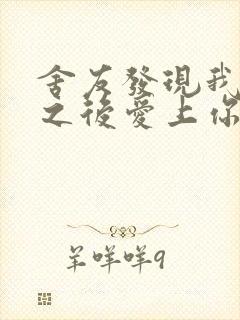 舍友發現我
之後愛上你
羊咩咩9